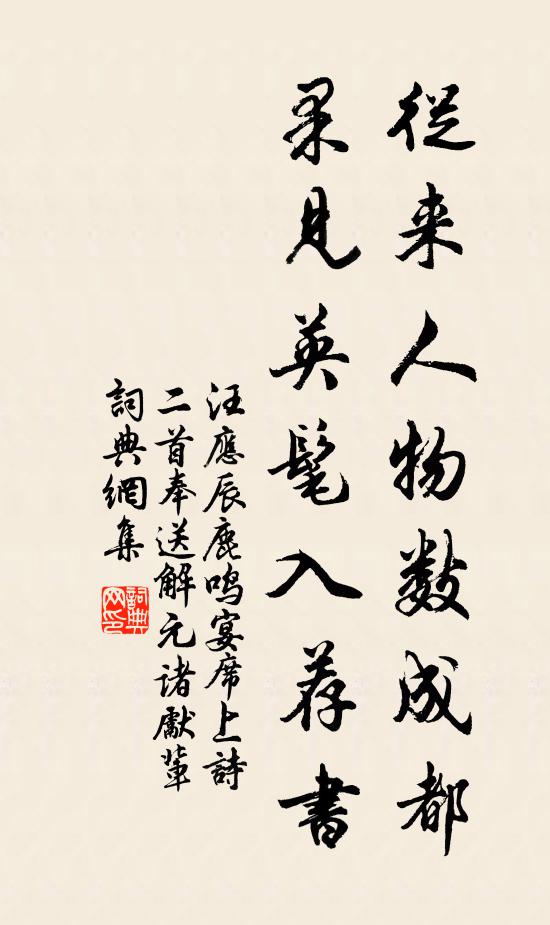 従来人物数成都
果見英髦入荐書
汪應辰鹿鳴宴席上詩
二首奉送解元諸獻輩
詞典網集
詞典网印